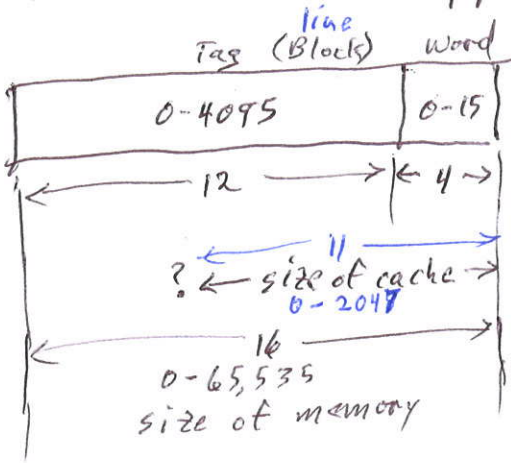 line
Tag (Block) Word
0-4095 0-15
12 4
11
? size of cache
0-2047
16
0-65,535
size of memory